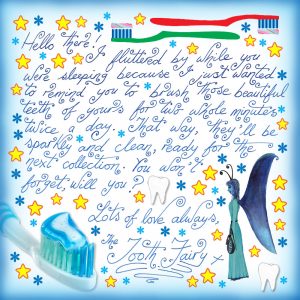 Hello there!
I fluttered by while you
were sleeping because I just wanted
to remind you to brush those beautiful
teeth of yours for two whole minutes
twice a day. That way, they'll be
sparkly and clean, ready for the
next collection. You won't
forget, will you?
Lots of love always,
The
Tooth Fairy x